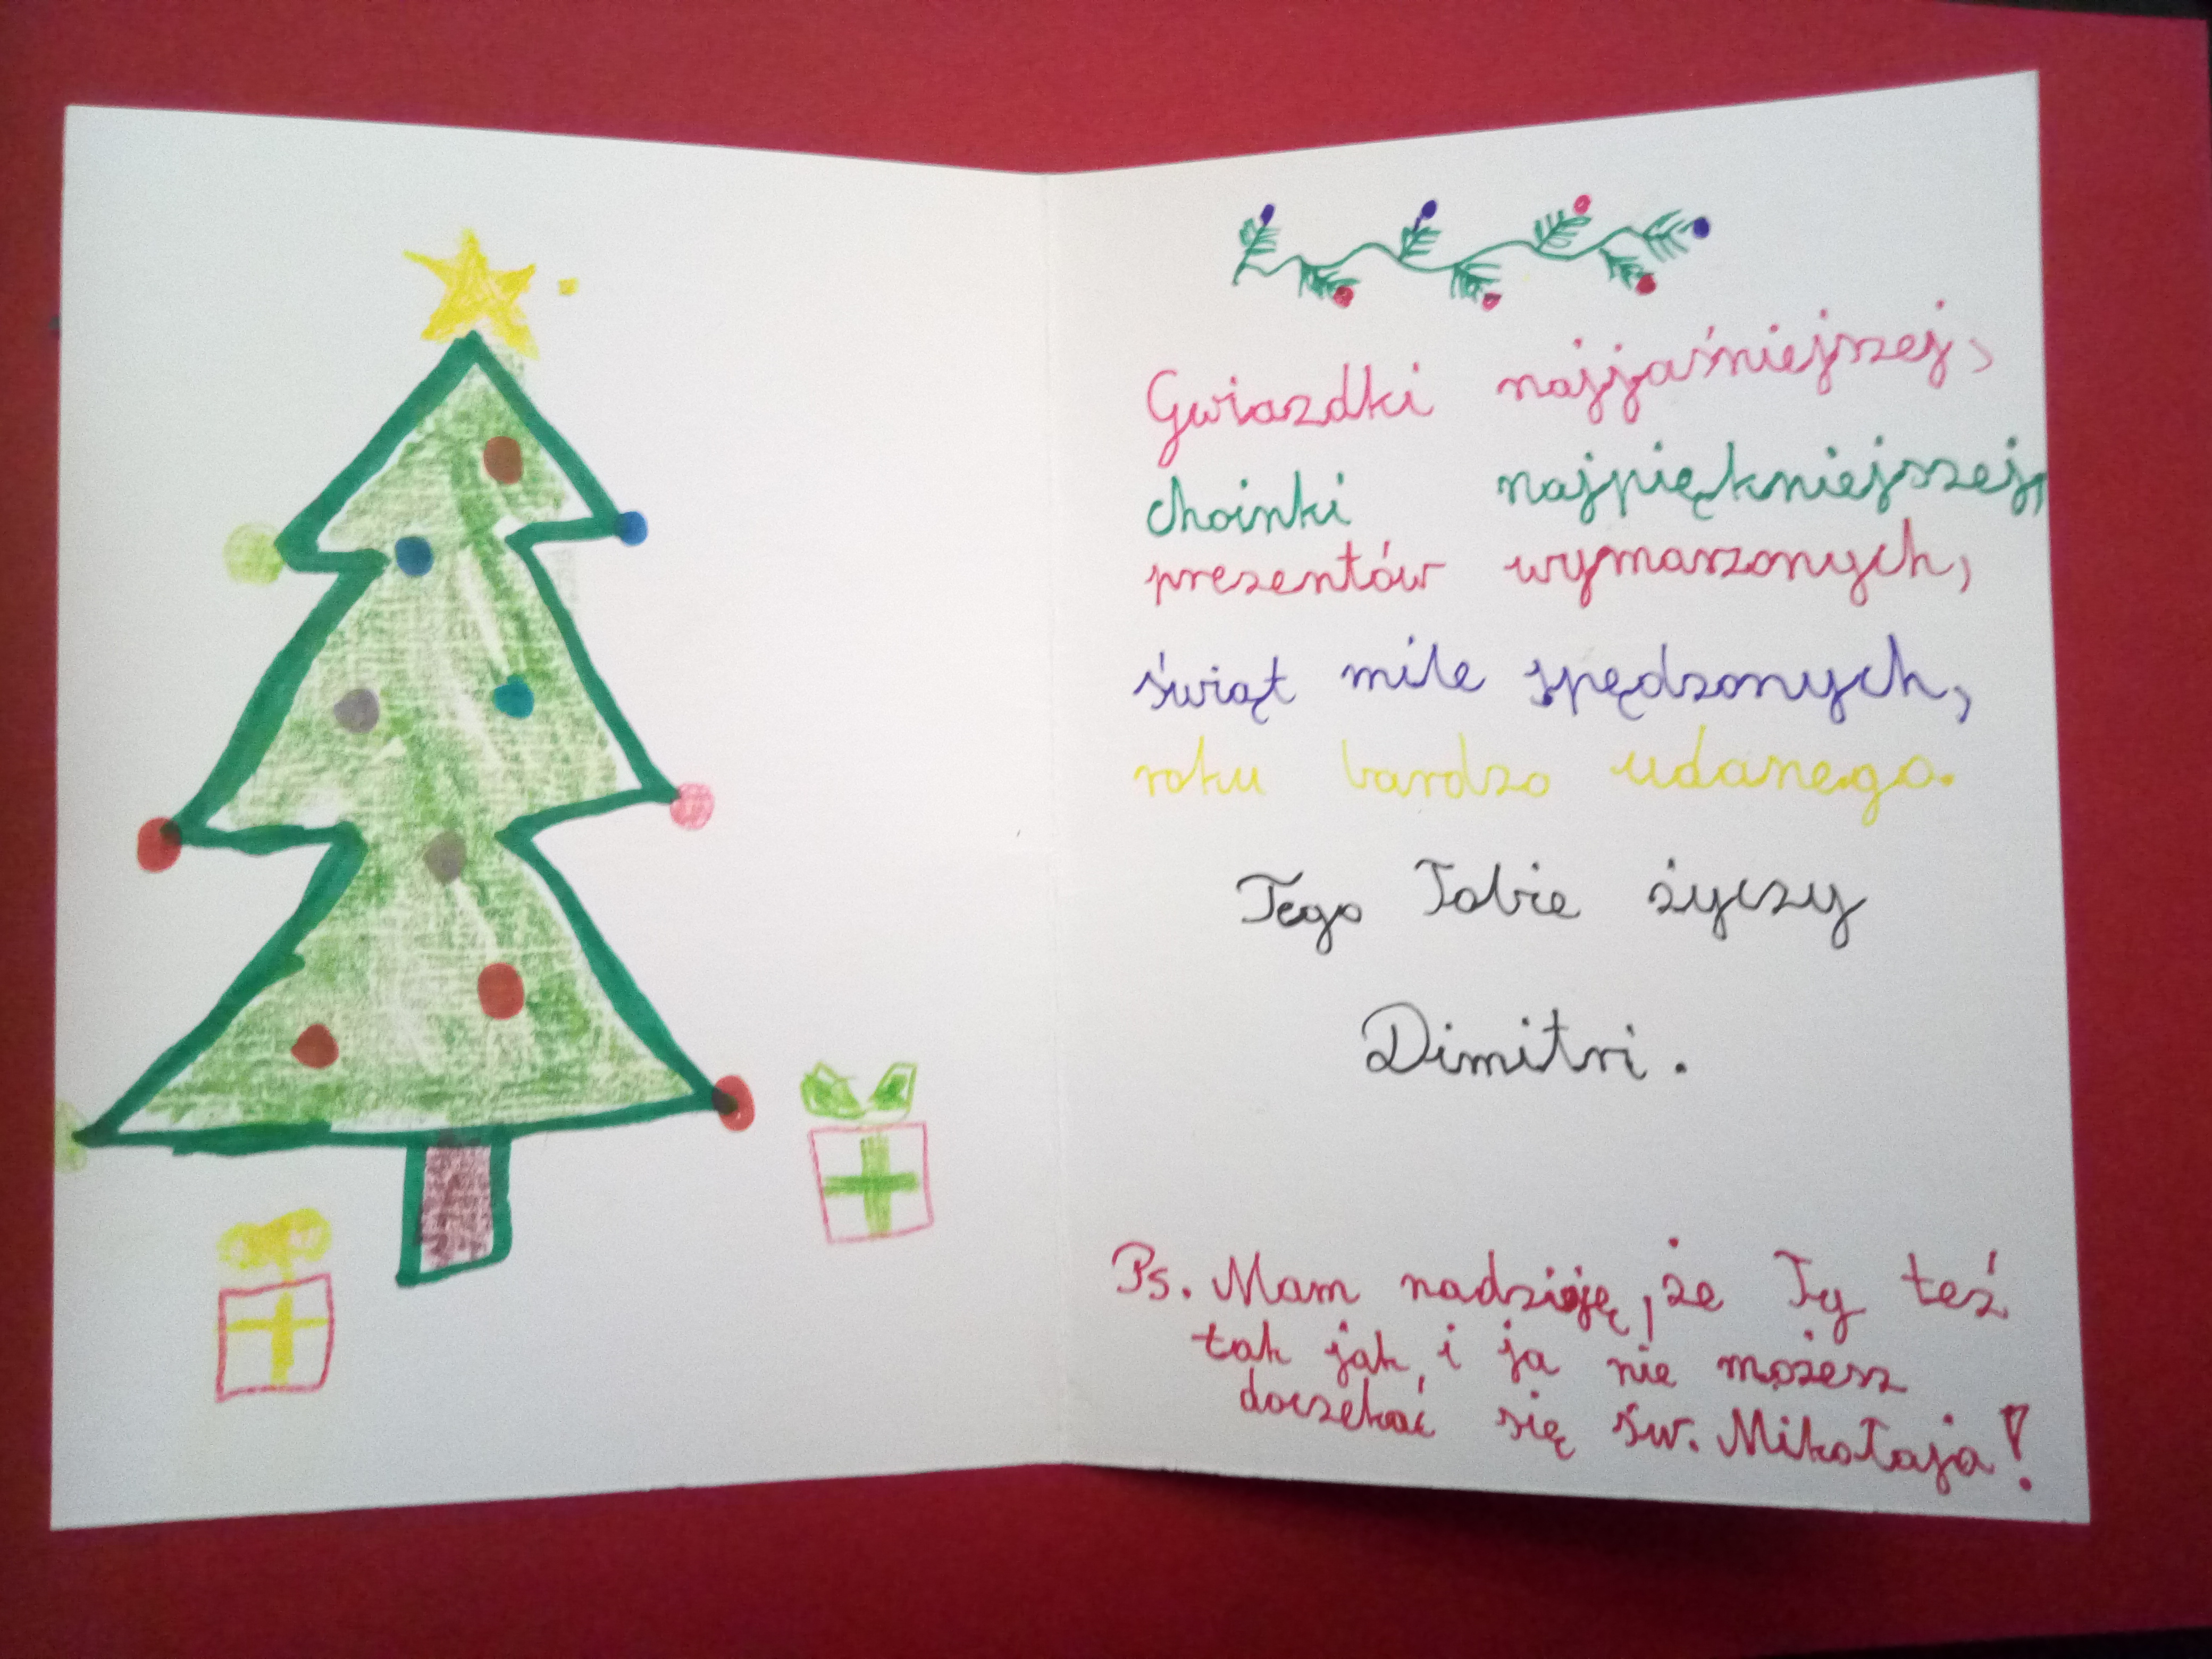 Gwiazdki najjaśniejszej,
choinki najpiękniejszej,
prezentów wymarzonych,
świąt mile spędzonych,
roku bardzo udanego.
Tego Tobie życzy
Dimitri.
Ps. Mam nadzieję, że Ty też
tak jak i ja nie możesz
doczekać się św. Mikołaja!